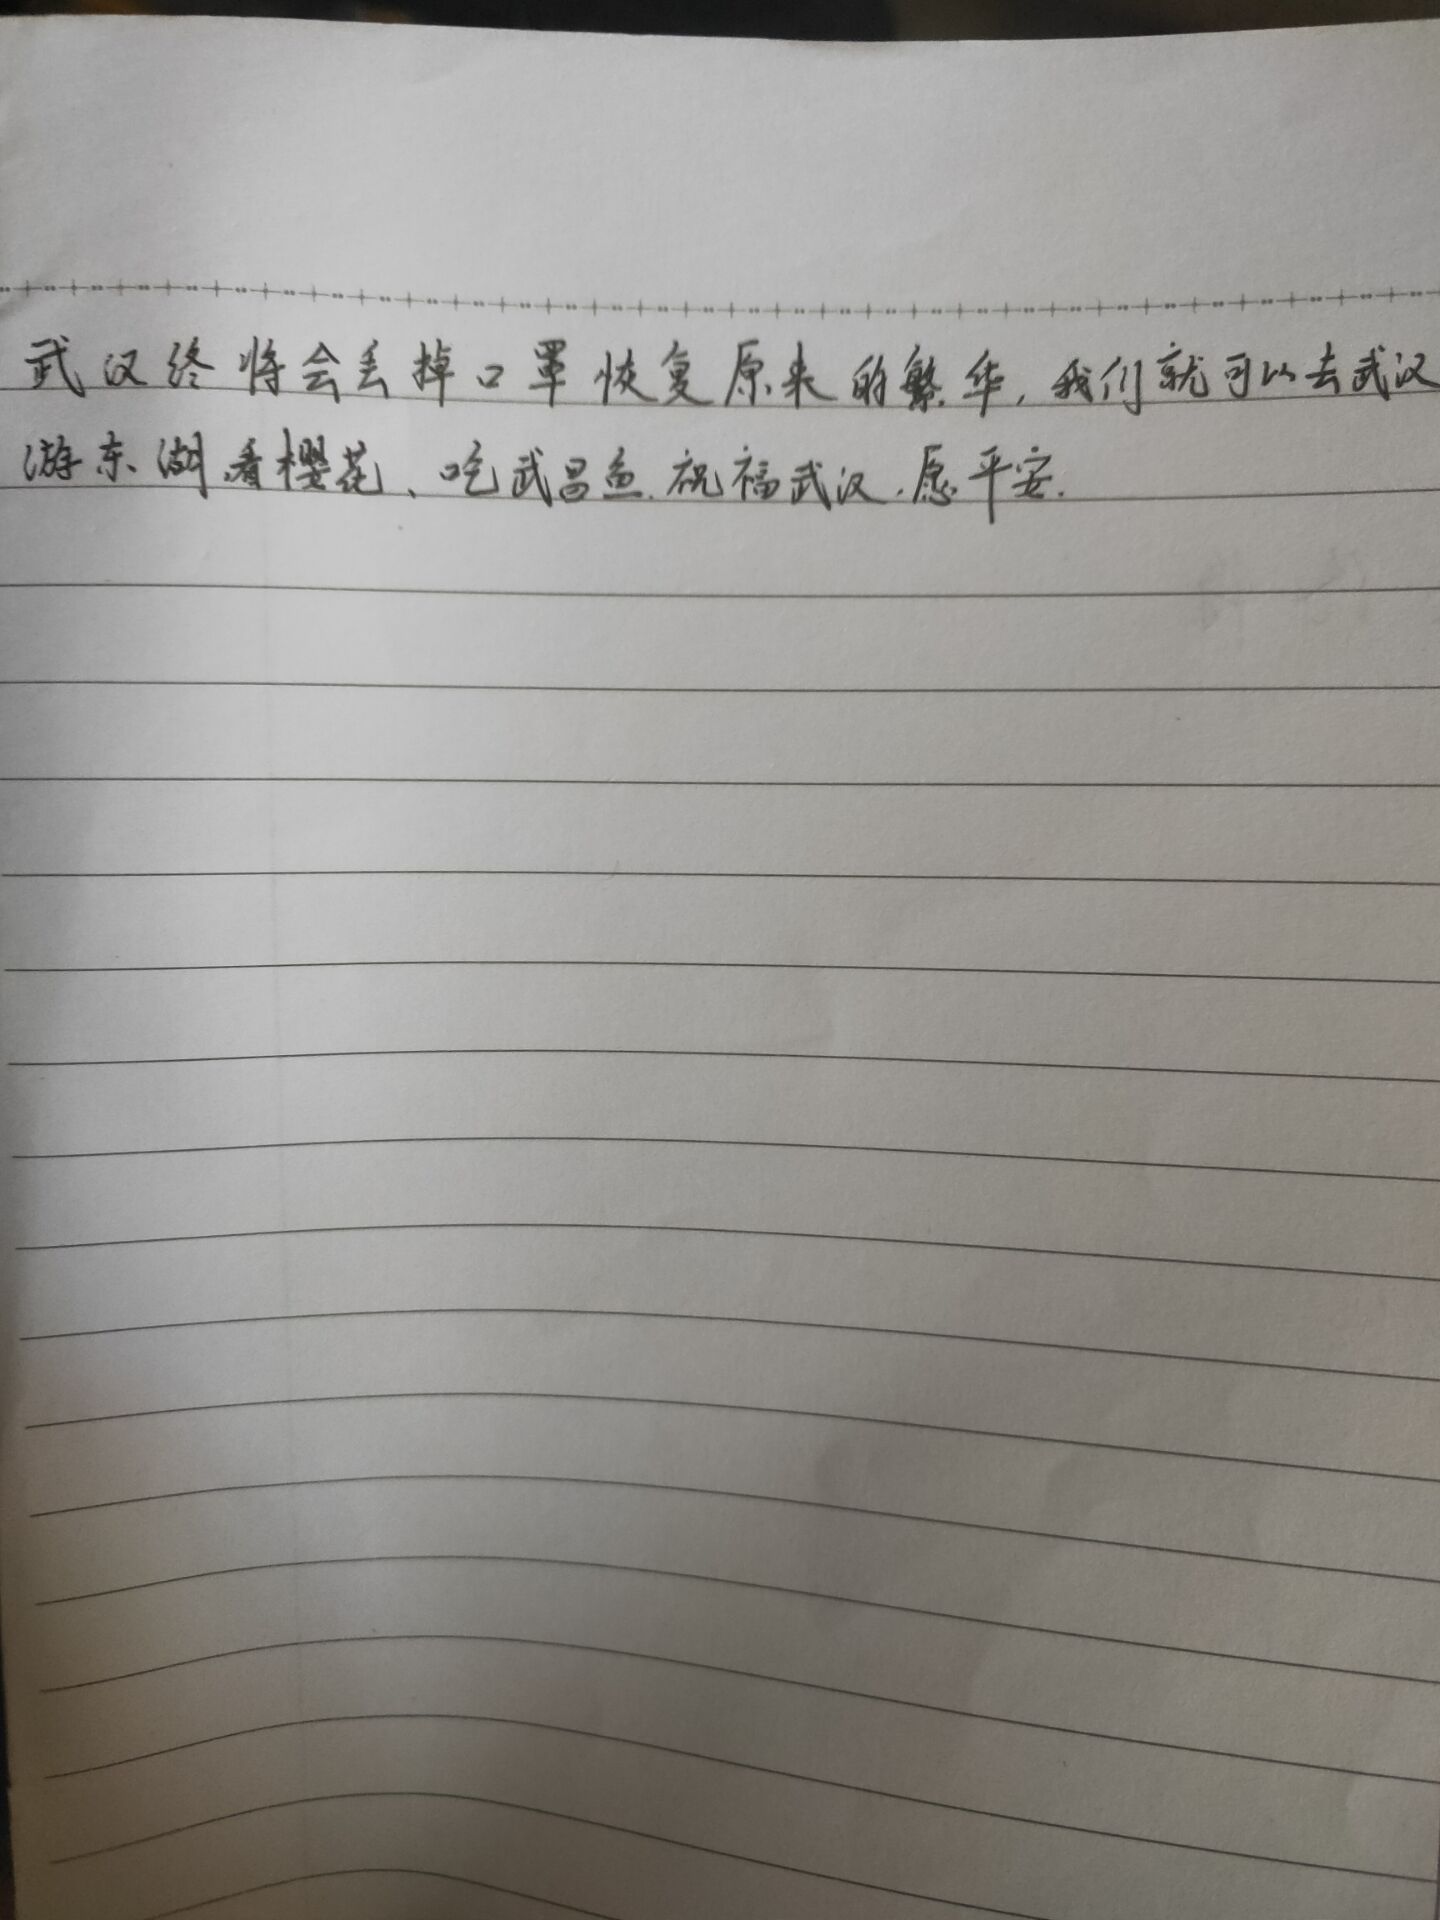 武汉终将会丢掉口罩恢复原来的繁华,我们就可以去武汉
游东湖看樱花、吃武昌鱼.祝福武汉.愿平安.